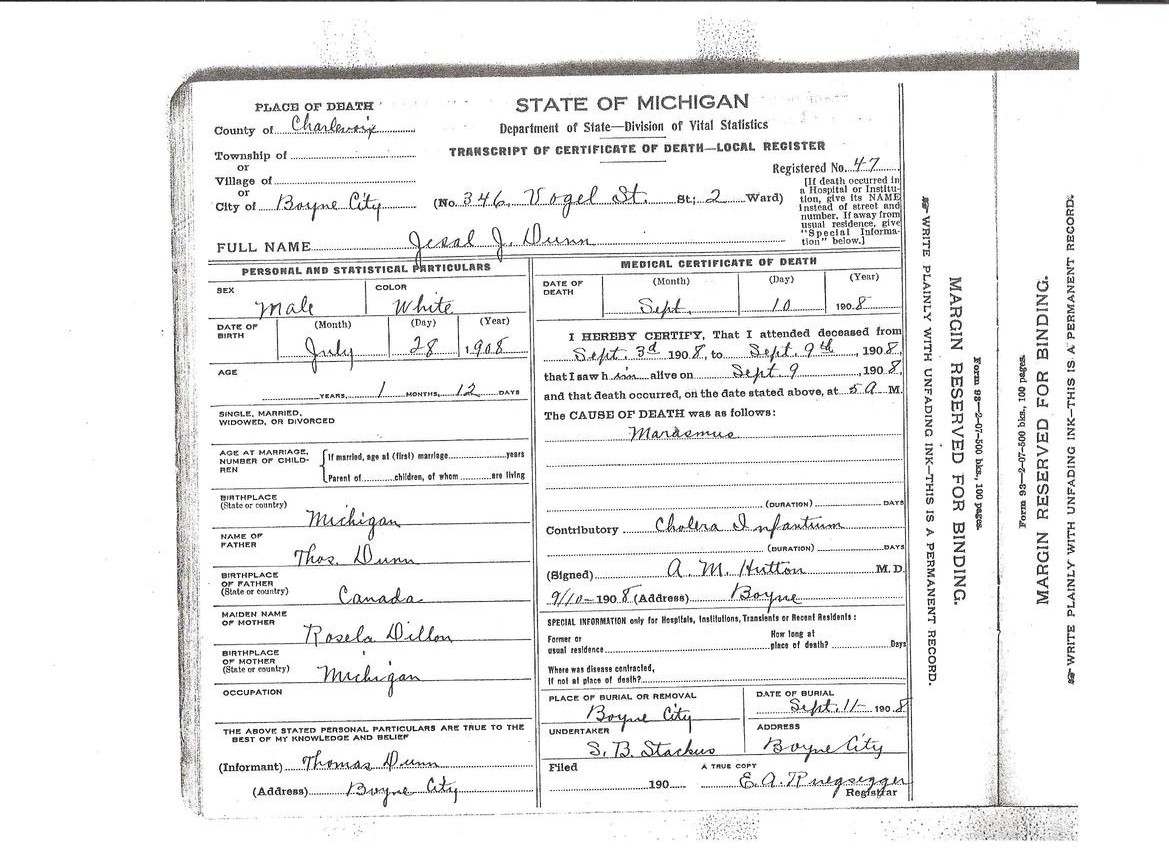 PLACE OF DEATH
STATE OF MICHIGAN
County of Charlevoix
Department of State—Division of Vital Statistics
Township of
TRANSCRIPT OF CERTIFICATE OF DEATH—LOCAL REGISTER
or
Village of
Registered No. 47
or
City of Boyne City (No. 346, Vogel St. St; 2 Ward)
[If death occurred in
a Hospital or Institu-
tion, give its NAME
instead of street and
number. If away from
usual residence, give
"Special Informa-
tion" below.]
FULL NAME J. Dunn
PERSONAL AND STATISTICAL PARTICULARS
SEX Male
COLOR White
DATE OF
BIRTH
(Month) (Day) (Year)
July 28 1908
AGE
YEARS, 1 MONTHS, 12 DAYS
SINGLE, MARRIED,
WIDOWED, OR DIVORCED
AGE AT MARRIAGE,
NUMBER OF CHILD-
REN
If married, age at (first) marriage years
Parent of children, of whom are living
BIRTHPLACE
(State or country)
Michigan
NAME OF
FATHER
Thos. Dunn
BIRTHPLACE
OF FATHER
(State or country)
Canada
MAIDEN NAME
OF MOTHER
Rosela Dillon
BIRTHPLACE
OF MOTHER
(State or country)
Michigan
OCCUPATION
THE ABOVE STATED PERSONAL PARTICULARS ARE TRUE TO THE
BEST OF MY KNOWLEDGE AND BELIEF
(Informant) Thomas Dunn
(Address) Boyne City
MEDICAL CERTIFICATE OF DEATH
DATE OF
DEATH
(Month) (Day) (Year)
Sept. 10 1908
I HEREBY CERTIFY, That I attended deceased from
Sept. 3d 1908, to Sept. 9th, 1908,
that I saw him alive on Sept. 9, 1908,
and that death occurred, on the date stated above, at 5 A M.
The CAUSE OF DEATH was as follows:
Marasmus
(DURATION) DAYS
Contributory Cholera Infantum
(DURATION) DAYS
(Signed) A. M. Hutton M. D.
9/10-1908 (Address) Boyne
SPECIAL INFORMATION only for Hospitals, Institutions, Transients or Recent Residents:
Former or
usual residence
How long at
place of death? Days
Where was disease contracted,
If not at place of death?
PLACE OF BURIAL OR REMOVAL
Boyne City
DATE OF BURIAL
Sept. 11 1908
UNDERTAKER
S. B. Stackus
ADDRESS
Boyne City
Filed
190
A TRUE COPY
E. A. Ruegsegger
Registrar
WRITE PLAINLY WITH UNFADING INK—THIS IS A PERMANENT RECORD.
MARGIN RESERVED FOR BINDING.
Form 93—2-07-500 bks., 100 pages.
Form 93—2-07-500 bks., 100 pages.
MARGIN RESERVED FOR BINDING.
WRITE PLAINLY WITH UNFADING INK—THIS IS A PERMANENT RECORD.